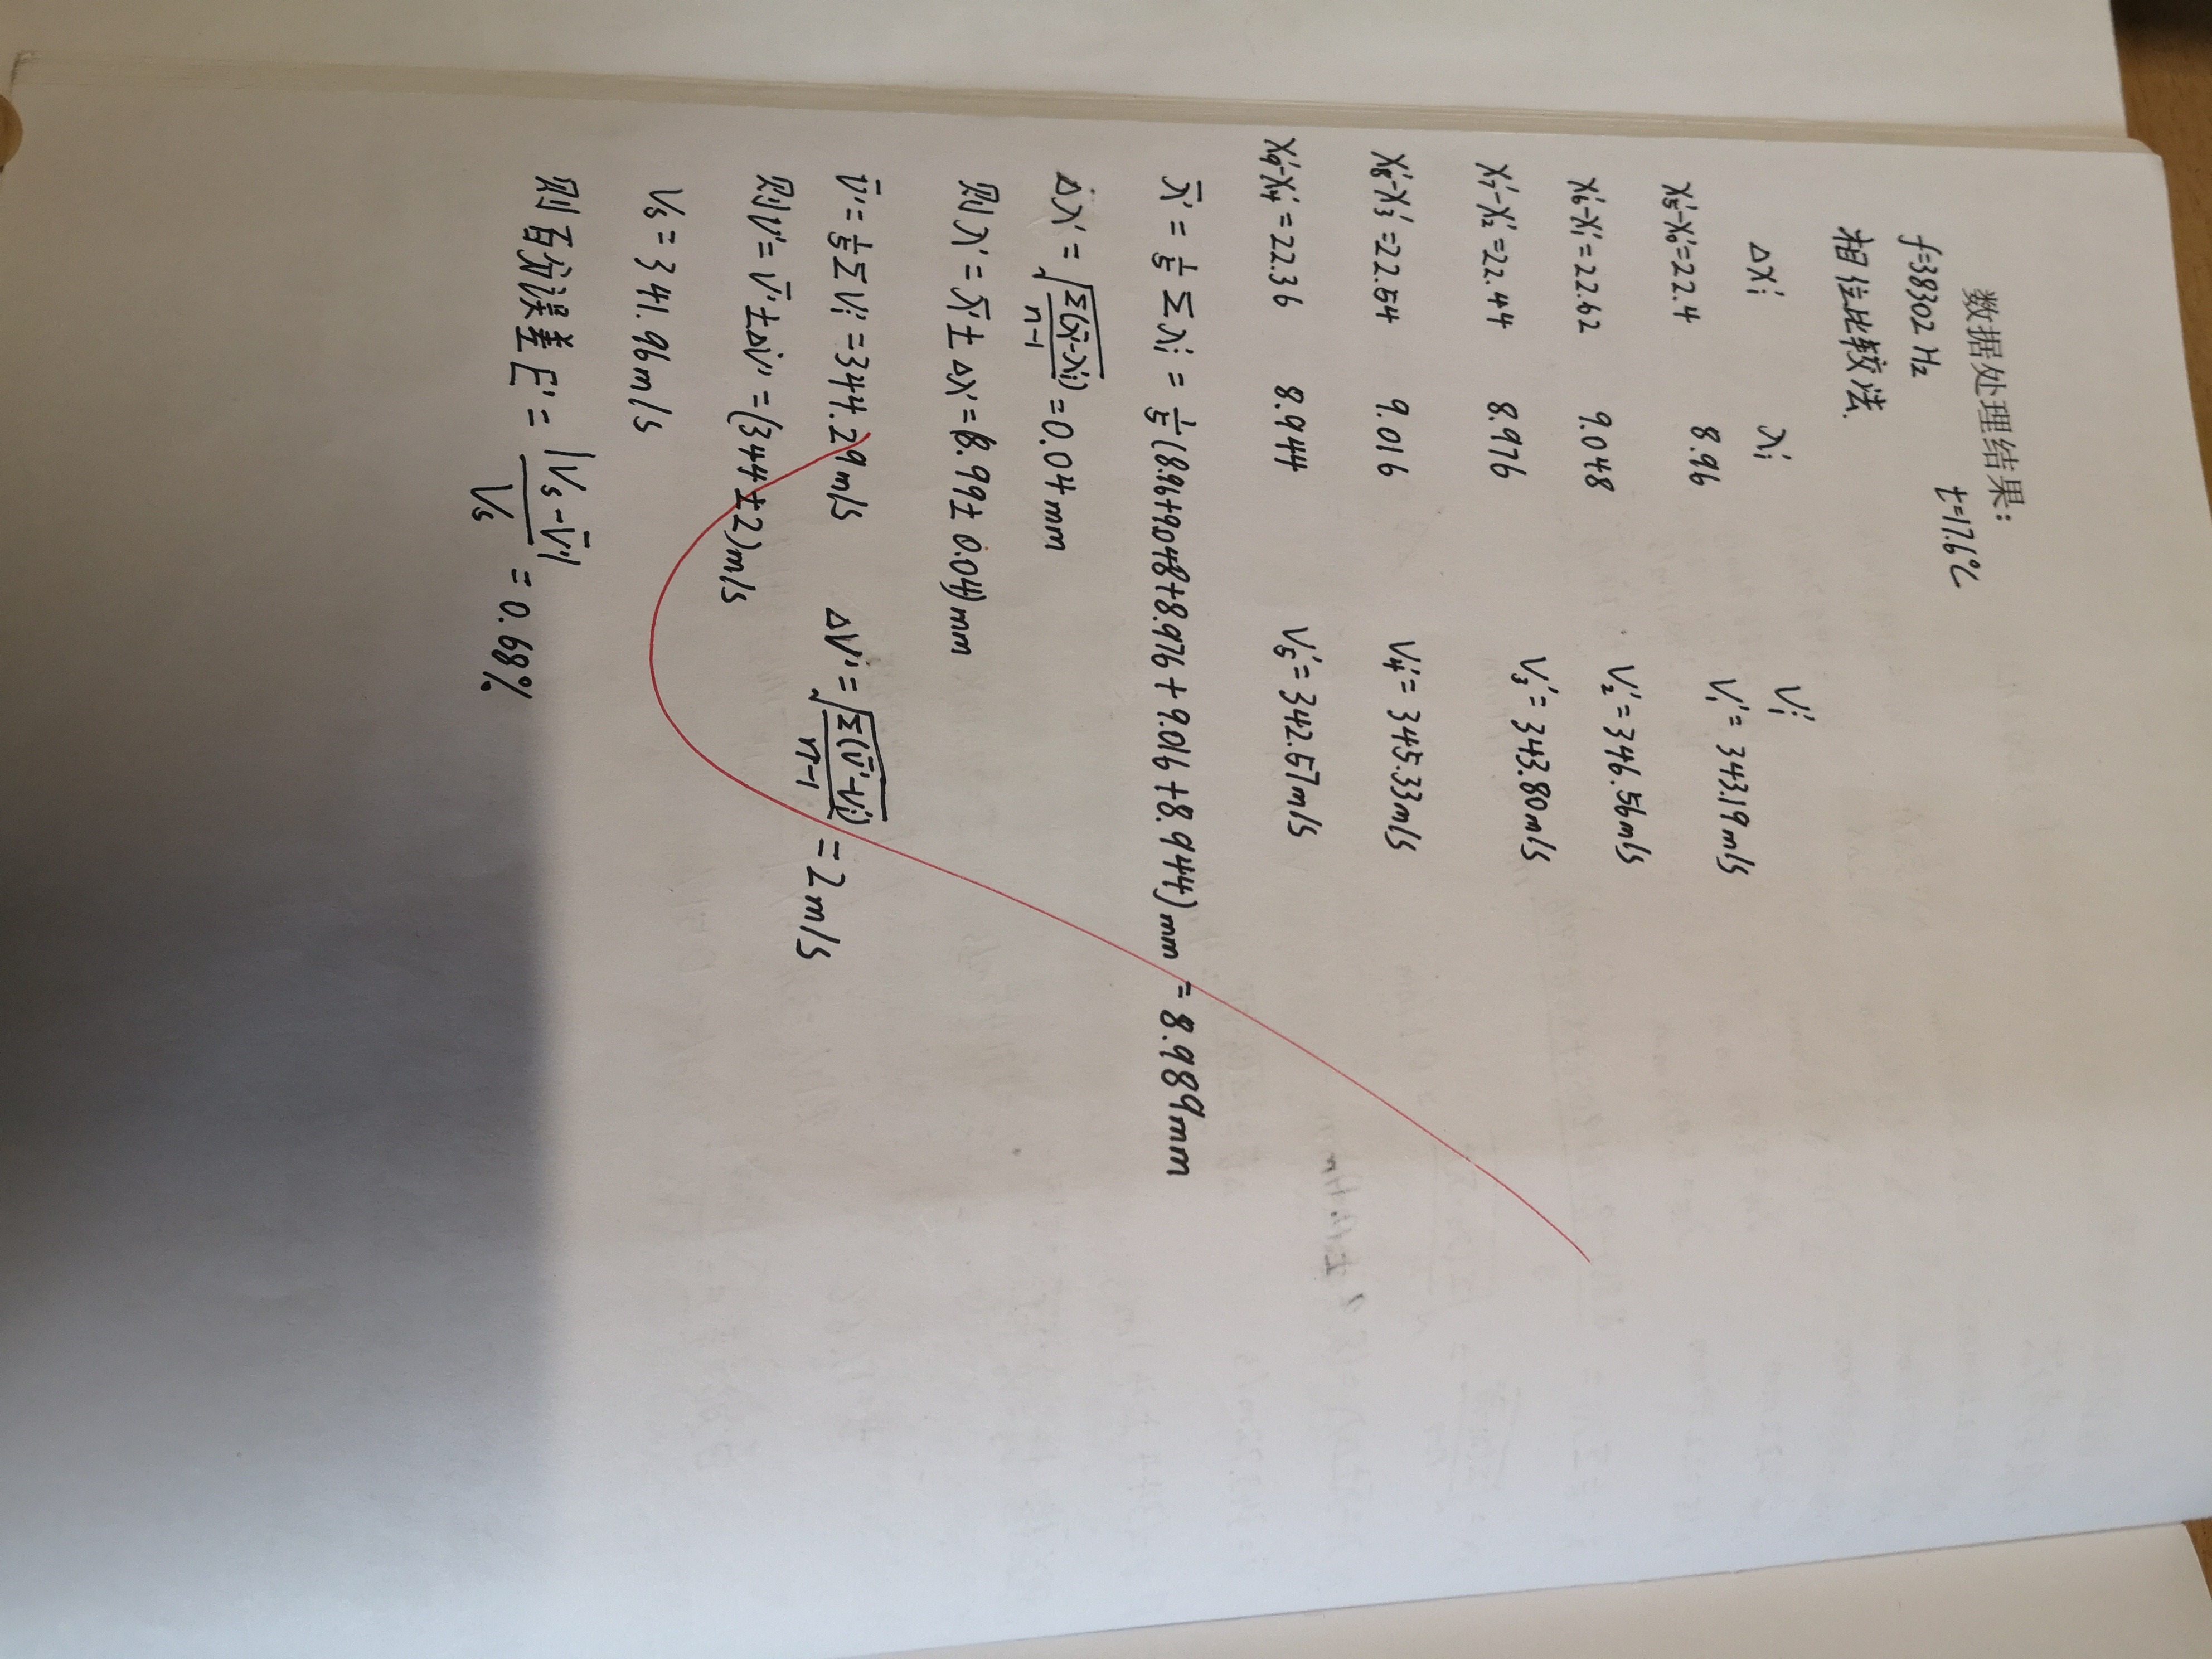 数据处理结果:
f=38302 Hz t=17.6℃
相位比较法
Δχi λi Vi'
χ5'-χ0'=22.4 8.96 V1'=343.19m/s
χ6'-χ1'=22.62 9.048 V2'=346.56m/s
χ7'-χ2'=22.44 8.976 V3'=343.80m/s
χ8'-χ3'=22.54 9.016 V4'=345.33m/s
χ9'-χ4'=22.36 8.944 V5'=342.57m/s
λ̄'=1/5 Σλi'=1/5(8.96+9.048+8.976+9.016+8.944)mm=8.989mm
Δλ'=√(Σ(λ̄'-λi)/(n-1))=0.04mm
则λ'=λ̄'±Δλ'=8.99±0.04)mm
V̄'=1/5ΣVi'=344.29m/s ΔV'=√(Σ(V̄'-Vi)/(n-1))=2m/s
则V'=V̄'±ΔV'=(344±2)m/s
Vs=341.96m/s
则百分误差E'=|Vs-V̄'|/Vs=0.68%